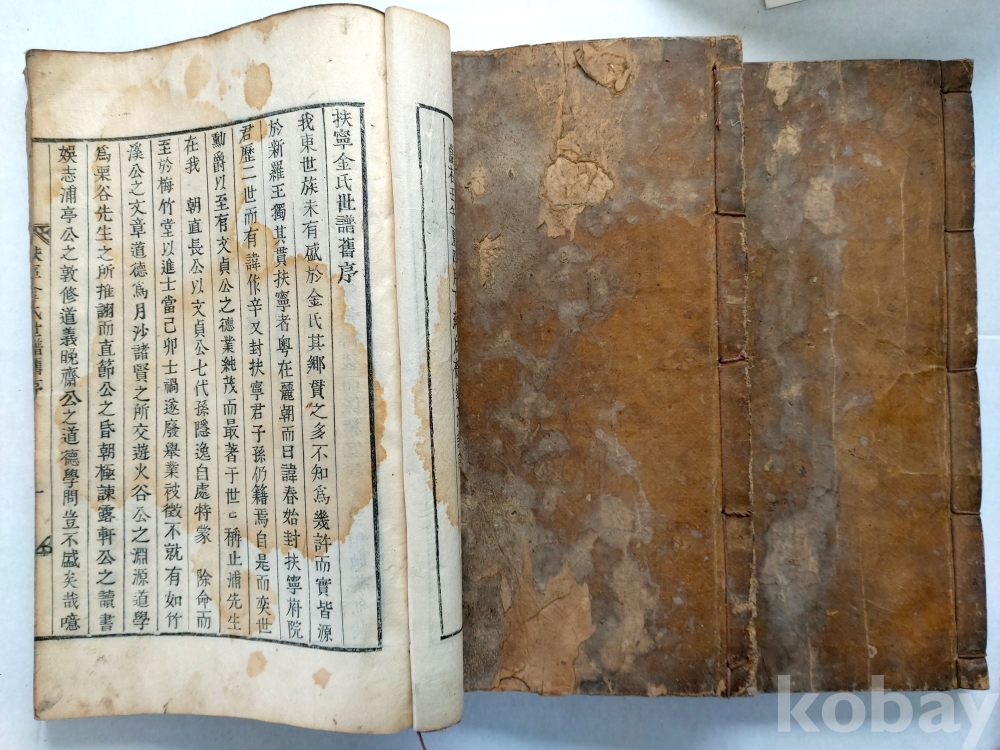 扶寧金氏世譜舊序
我東世族未有盛於金氏其鄉貫之多不知爲幾許而實皆源
於新羅王獨其貫扶寧者粤在麗朝而曰諱春始封扶寧府院
君歷二世而有諱作辛又封扶寧君子孫仍籍焉自是而奕世
勳爵以至有文貞公之德業純茂而最著于世〻稱止浦先生
在我 朝直長公以文貞公七代孫隱逸自處特蒙 除命而
至於梅竹堂以進士當己卯士禍遂廢舉業被徵不就有如竹
溪公之文章道德爲月沙諸賢之所交遊火谷公之淵源道學
爲栗谷先生之所推詡而直節公之昏朝極諫露軒公之讀書
娛志浦亭公之敦修道義晚齋公之道德學問豈不盛矣哉噫
扶寧金氏世譜舊序
一
kobay